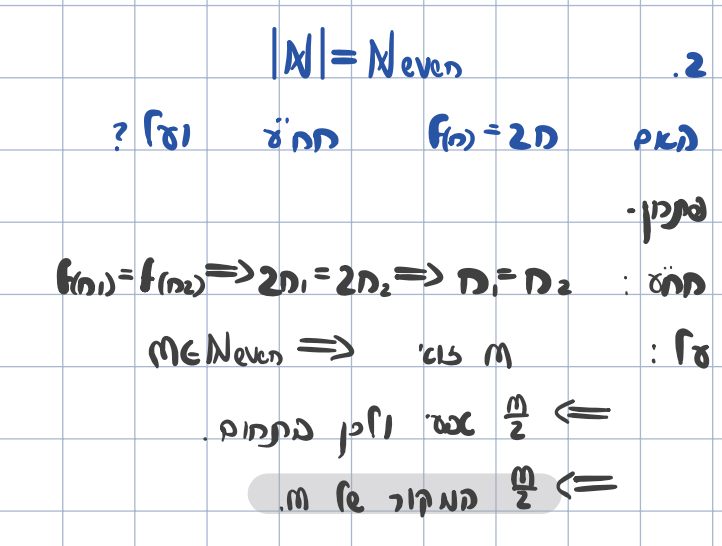 2. |ℕ| = ℕeven
האם f(n) = 2n חח״ע ועל ?
פתרון -
חח״ע : f(n₁) = f(n₂) ⇒ 2n₁ = 2n₂ ⇒ n₁ = n₂
על : m זוגי ⇐ m∈ℕeven
⇐ m/2 טבעי ולכן בתחום .
⇐ m/2 המקור של m.